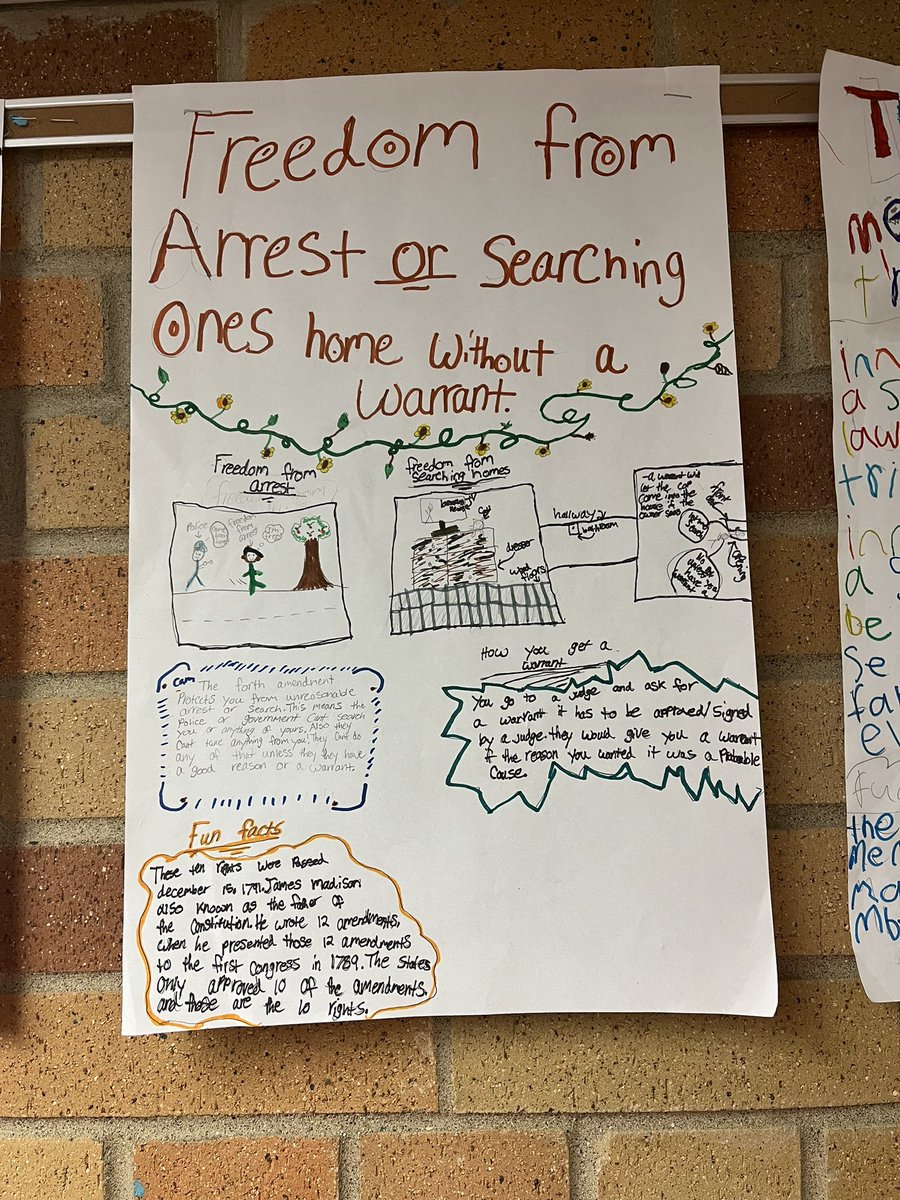 Freedom from
Arrest or Searching
Ones home without a
warrant.
Freedom from
arrest
Police
Freedom
from
arrest
freedom from
searching homes
cop
dresser
wood floors
hallway
washroom
-a warrent
let the cop
come into the
home if the
owner
How you get a
warrant
Cam The forth amendment
Protects you from unreasonable
arrest or search. This means the
Police or government Cant search
you or anything of yours. Also they
Cant take anything from you! They Cant do
any of that unless they they have
a good reason or a warrant.
You go to a Judge and ask for
a warrant it has to be approved/signed
by a judge. they would give you a warrant
if the reason you wanted it was a Probable
Cause.
Fun facts
These ten rights were Passed
december 15, 1791. James madison
also known as the father of
the Constitution. He wrote 12 amendments,
when he presented those 12 amendments
to the first Congress in 1789. The states
Only approved 10 of the amendments.
and those are the 10 rights.
inn
a s
law
tri
in
a
be
se
fa
ev
fu
the
Me
Ma
Mb